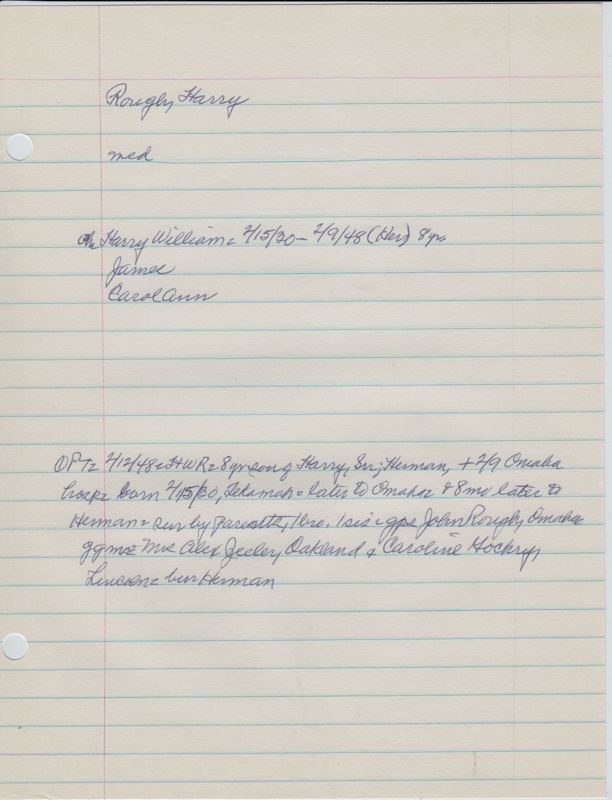 Rougby, Harry
med
ch= Harry William= 2/15/30 - 2/9/48 (Her) 8 yrs
James
Carol Ann
OPT= 2/12/48= HWR= 8 yr son of Harry, Sr; Herman, + 2/9 Omaha
hosp= born 2/15/30, Tekamah= later to Omaha & 8 mo later to
Herman= sur by parents, 1 bro. 1 sis= gps John Rougby, Omaha
ggms= Mrs Alex Jeeley, Oakland & Caroline
= bur Herman